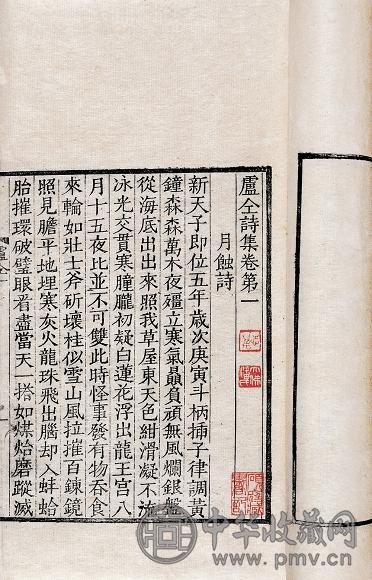 盧仝詩集卷第一
月蝕詩
新天子即位五年歲次庚寅斗柄插子律調黃
鐘森森萬木夜殭立寒氣贔負頑無風爛銀盤
從海底出出來照我草屋東天色紺滑凝不流
氷光交貫寒朣朧初疑白蓮花浮出龍王宮八
月十五夜比並不可雙此時怪事發有物吞食
來輪如壯士斧斫壞桂似雪山風拉摧百鍊鏡
照見膽平地埋寒灰火龍珠飛出腦却入蚌蛤
胎摧環破璧眼看盡當天一搭如煤炲磨蹤滅
中华收藏网
www.pmv.cn